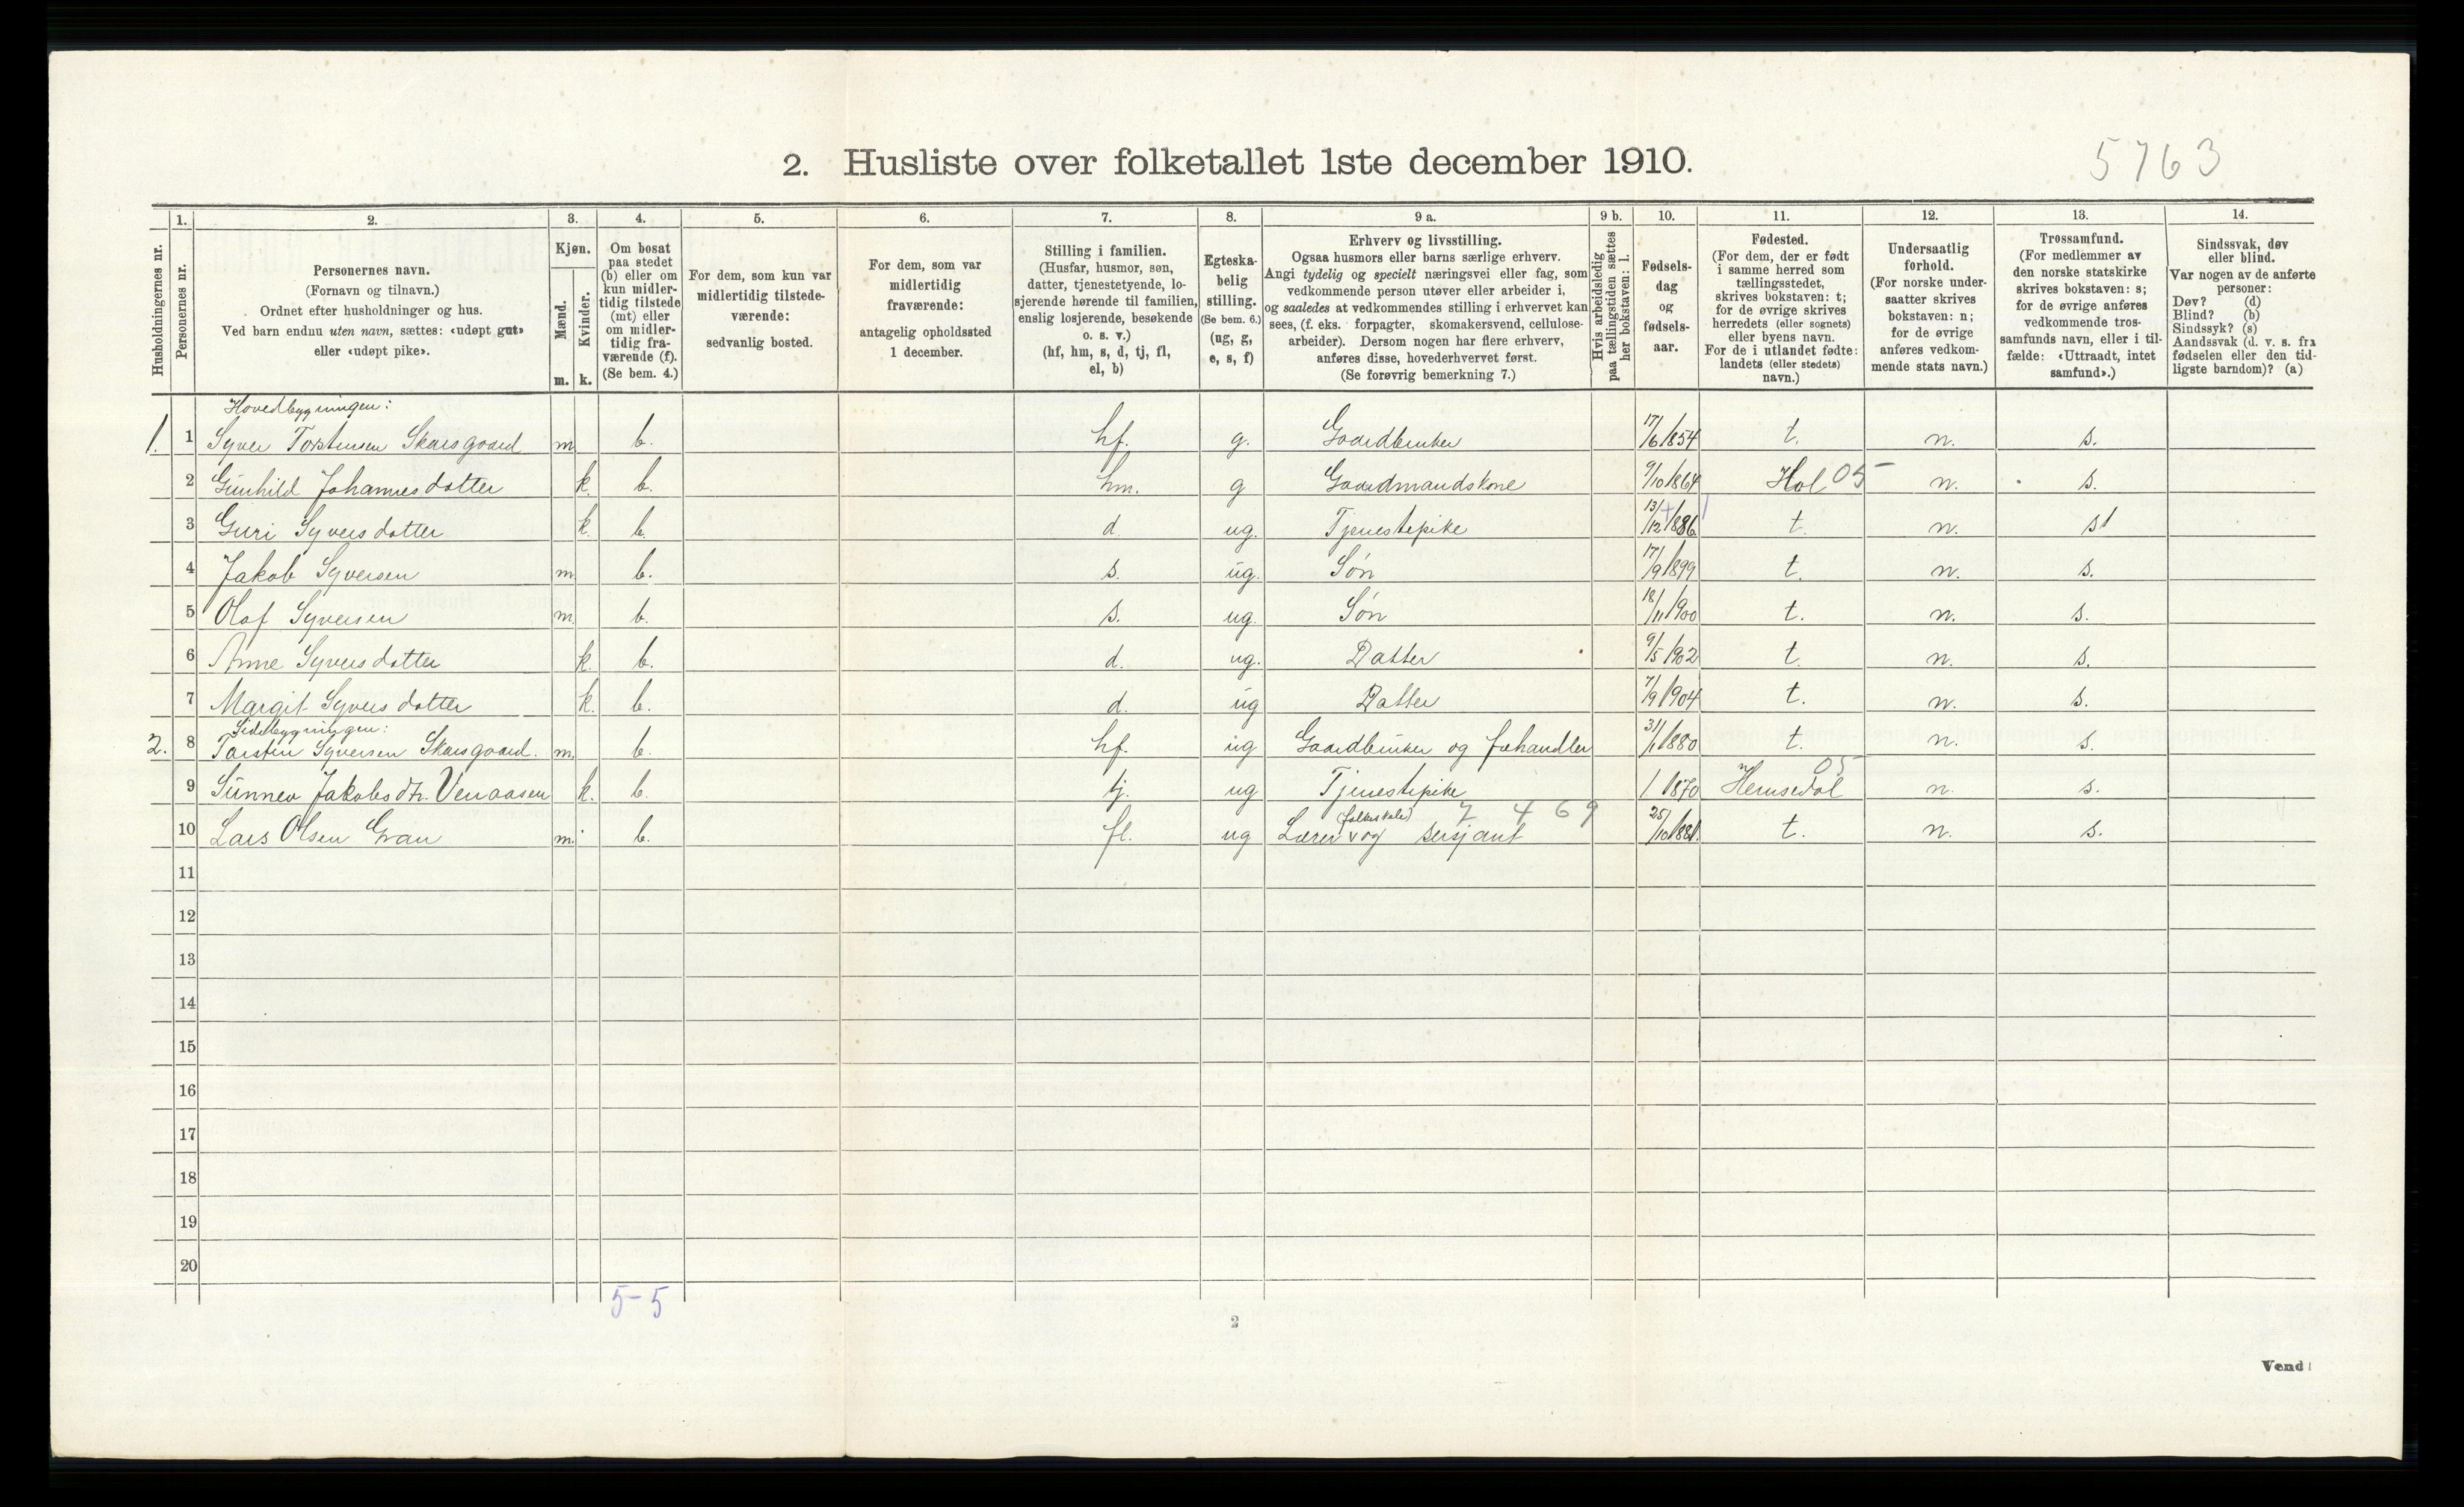 2. Husliste over folketallet 1ste december 1910.
5763
Husholdningernes nr.
1.
Personernes nr.
2.
Personernes navn.
(Fornavn og tilnavn.)
Ordnet efter husholdninger og hus.
Ved barn endnu uten navn, sættes: «udøpt gut»
eller «udøpt pike».
3.
Kjøn.
Mænd.
Kvinder.
m. k.
4.
Om bosat
paa stedet
(b) eller om
kun midler-
tidig tilstede
(mt) eller
om midler-
tidig fra-
værende (f).
(Se bem. 4.)
5.
For dem, som kun var
midlertidig tilstede-
værende:
sedvanlig bosted.
6.
For dem, som var
midlertidig
fraværende:
antagelig opholdssted
1 december.
7.
Stilling i familien.
(Husfar, husmor, søn,
datter, tjenestetyende, lo-
sjerende hørende til familien,
enslig losjerende, besøkende
o. s. v.)
(hf, hm, s, d, tj, fl,
el, b)
8.
Egteska-
belig
stilling.
(Se bem. 6.)
(ug, g,
e, s, f)
9 a.
Erhverv og livsstilling.
Ogsaa husmors eller barns særlige erhverv.
Angi tydelig og specielt næringsvei eller fag, som
vedkommende person utøver eller arbeider i,
og saaledes at vedkommendes stilling i erhvervet kan
sees, (f. eks. forpagter, skomakersvend, cellulose-
arbeider). Dersom nogen har flere erhverv,
anføres disse, hovederhvervet først.
(Se forøvrig bemerkning 7.)
9 b.
Hvis arbeidsledig
paa tællingstiden sættes
her bokstaven: l.
10.
Fødsels-
dag
og
fødsels-
aar.
11.
Fødested.
(For dem, der er født
i samme herred som
tællingsstedet,
skrives bokstaven: t;
for de øvrige skrives
herredets (eller sognets)
eller byens navn.
For de i utlandet fødte:
landets (eller stedets)
navn.)
12.
Undersaatlig
forhold.
(For norske under-
saatter skrives
bokstaven: n;
for de øvrige
anføres vedkom-
mende stats navn.)
13.
Trossamfund.
(For medlemmer av
den norske statskirke
skrives bokstaven: s;
for de øvrige anføres
vedkommende tros-
samfunds navn, eller i til-
fælde: «Uttraadt, intet
samfund».)
14.
Sindssvak, døv
eller blind.
Var nogen av de anførte
personer:
Døv? (d)
Blind? (b)
Sindssyk? (s)
Aandssvak (d. v. s. fra
fødselen eller den tid-
ligste barndom)? (a)
Hovedbygningen:
1. 1 Syver Torstensen Skarsgaard m b. hf. g. Gaardbruker 17/6 1854 t. n. s.
2 Gunhild Johannesdotter k. b. hm. g Gaardmandskone 9/10 1864 Hol 05 n. s.
3 Guri Syversdotter k. b. d. ug. Tjenestepike 13/12 1886 t. n. s
4 Jakob Syversen m b. s. ug. Søn 17/9 1899 t. n. s.
5 Olaf Syversen m b. s. ug. Søn 18/11 1900 t. n. s.
6 Anne Syversdotter k. b. d. ug. Datter 9/5 1902 t. n. s.
7 Margit Syversdotter k. b. d. ug Datter 7/9 1904 t. n. s.
Sidebygningen:
2. 8 Torsten Syversen Skarsgaard. m. b. hf. ug Gaardbruker og fæhandler 31/1 1880 t. n. s.
05
9 Sünnev Jakobsdtr. Venaasen k. b. tj. ug Tjenestepike / 1870 Hemsedal n. s.
(folkeskole) 7 469
10 Lars Olsen Gran m. b. fl. ug Lærer v og sersjant 25/10 1881. t. n. s.
11
12
13
14
15
16
17
18
19
20
5-5
2
Vend!